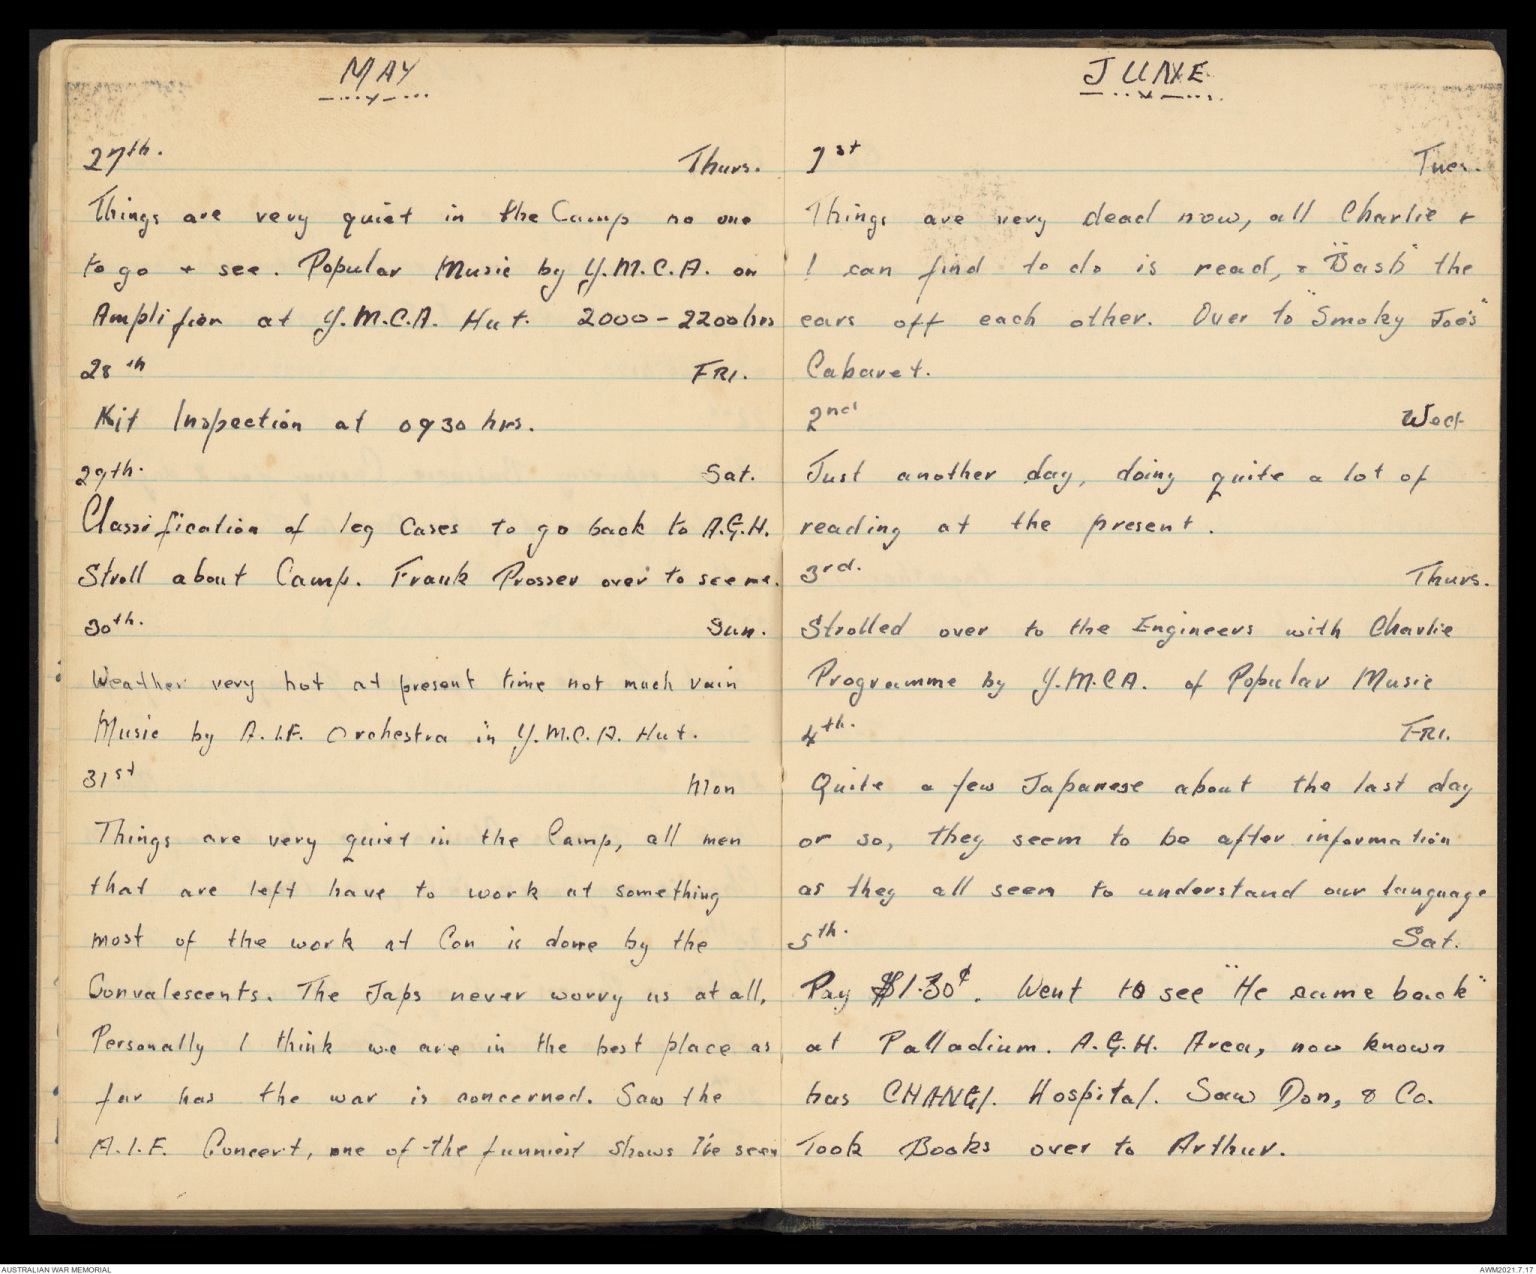 MAY
27th. Thurs.
Things are very quiet in the Camp no one
to go + see. Popular Music by Y.M.C.A. on
Amplifier at Y.M.C.A. Hut. 2000-2200hrs
28th FRI.
Kit Inspection at 0930 hrs.
29th. Sat.
Classification of leg Cases to go back to A.G.H.
Stroll about Camp. Frank Prosser over to see me.
30th. Sun.
Weather very hot at present time not much rain
Music by A.I.F. Orchestra in Y.M.C.A. Hut.
31st Mon
Things are very quiet in the Camp, all men
that are left have to work at something
most of the work at Con is done by the
Convalescents. The Japs never worry us at all,
Personally I think we are in the best place as
far has the war is concerned. Saw the
A.I.F. Concert, one of the funniest shows I've seen
JUNE
1st Tues.
Things are very dead now, all Charlie +
I can find to do is read, + "Bash" the
ears off each other. Over to "Smoky Joe's"
Cabaret.
2nd Wed
Just another day, doing quite a lot of
reading at the present.
3rd. Thurs.
Strolled over to the Engineers with Charlie
Programme by Y.M.C.A. of Popular Music
4th. FRI.
Quite a few Japanese about the last day
or so, they seem to be after information
as they all seem to understand our language
5th. Sat.
Pay $1.30¢. Went to see "He came back"
at Palladium. A.G.H. Area, now known
has CHANGI. Hospital. Saw Don, & Co.
Took Books over to Arthur.
AUSTRALIAN WAR MEMORIAL
AWM2021.7.17